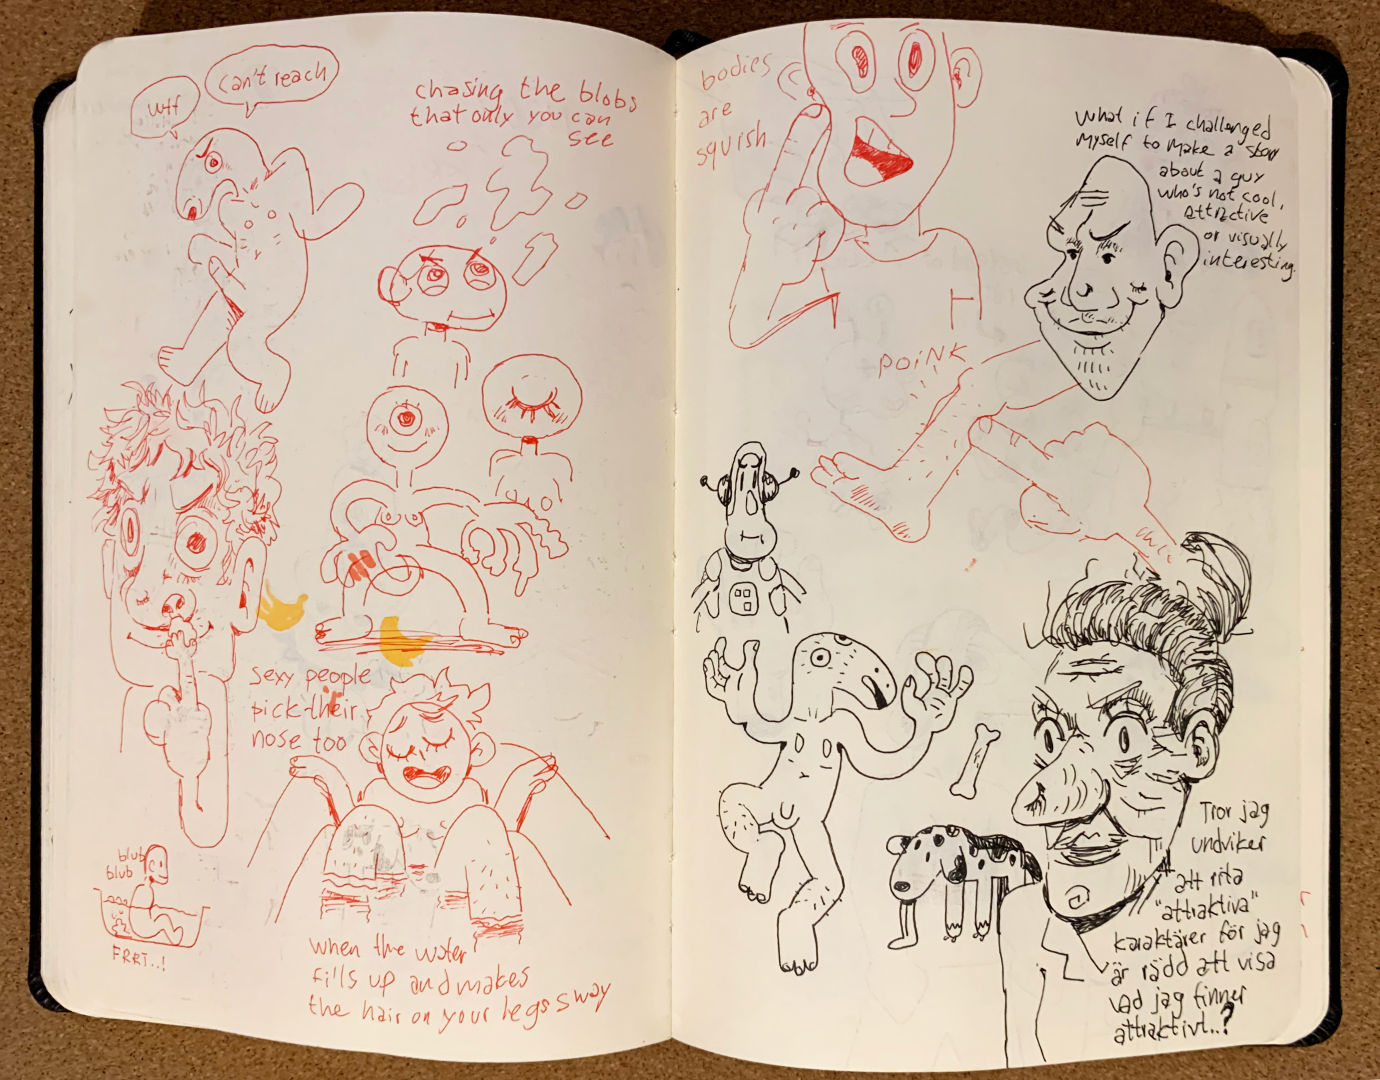 wtf
can't reach
chasing the blobs
that only you can
see
sexy people
pick their
nose too
blub
blub
FRRT..!
when the water
fills up and makes
the hair on your legs sway
bodies
are
squish.
What if I challenged
myself to make a story
about a guy
who's not cool,
attractive
or visually
interesting.
POINK
Tror jag
undviker
att rita
"attraktiva"
karaktärer för jag
är rädd att visa
vad jag finner
attraktivt..?